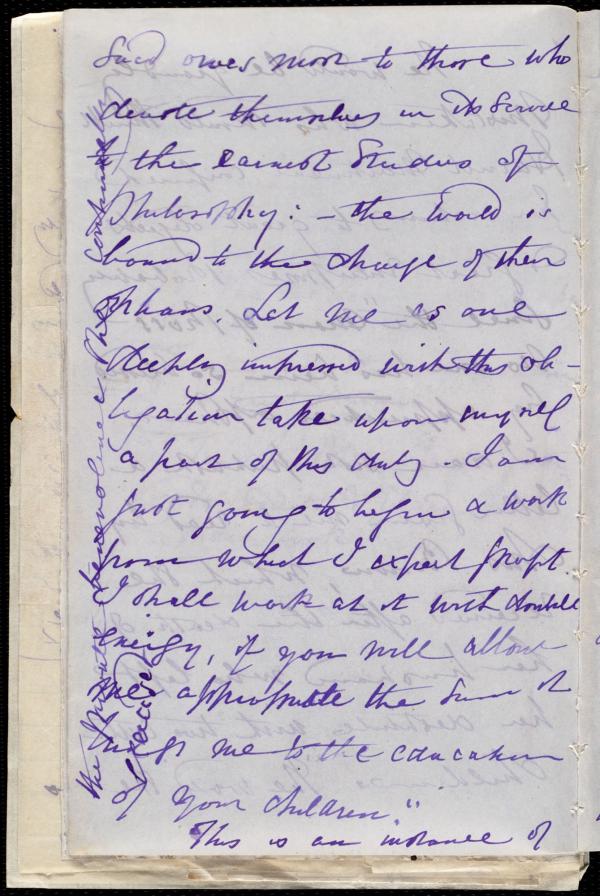 said owes most to those who
devote themselves in its service
to the earnest studies of
Philosophy: - the world is
bound to the charge of their
orphans. Let me "as one
deeply impressed with this ob-
ligation take upon myself
a part of this duty - I am
just going to begin a work
from which I expect profit.
I shall work at it with double
energy, if you will allow
me appropriate the sum it
brings me to the education
of your children."
This is an instance of
the private benevolence she continually
exercised